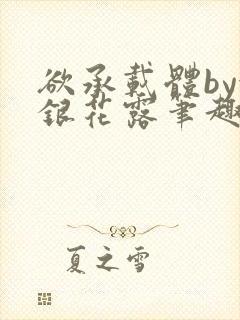 欲承載體by
銀花露筆趣
夏之雪